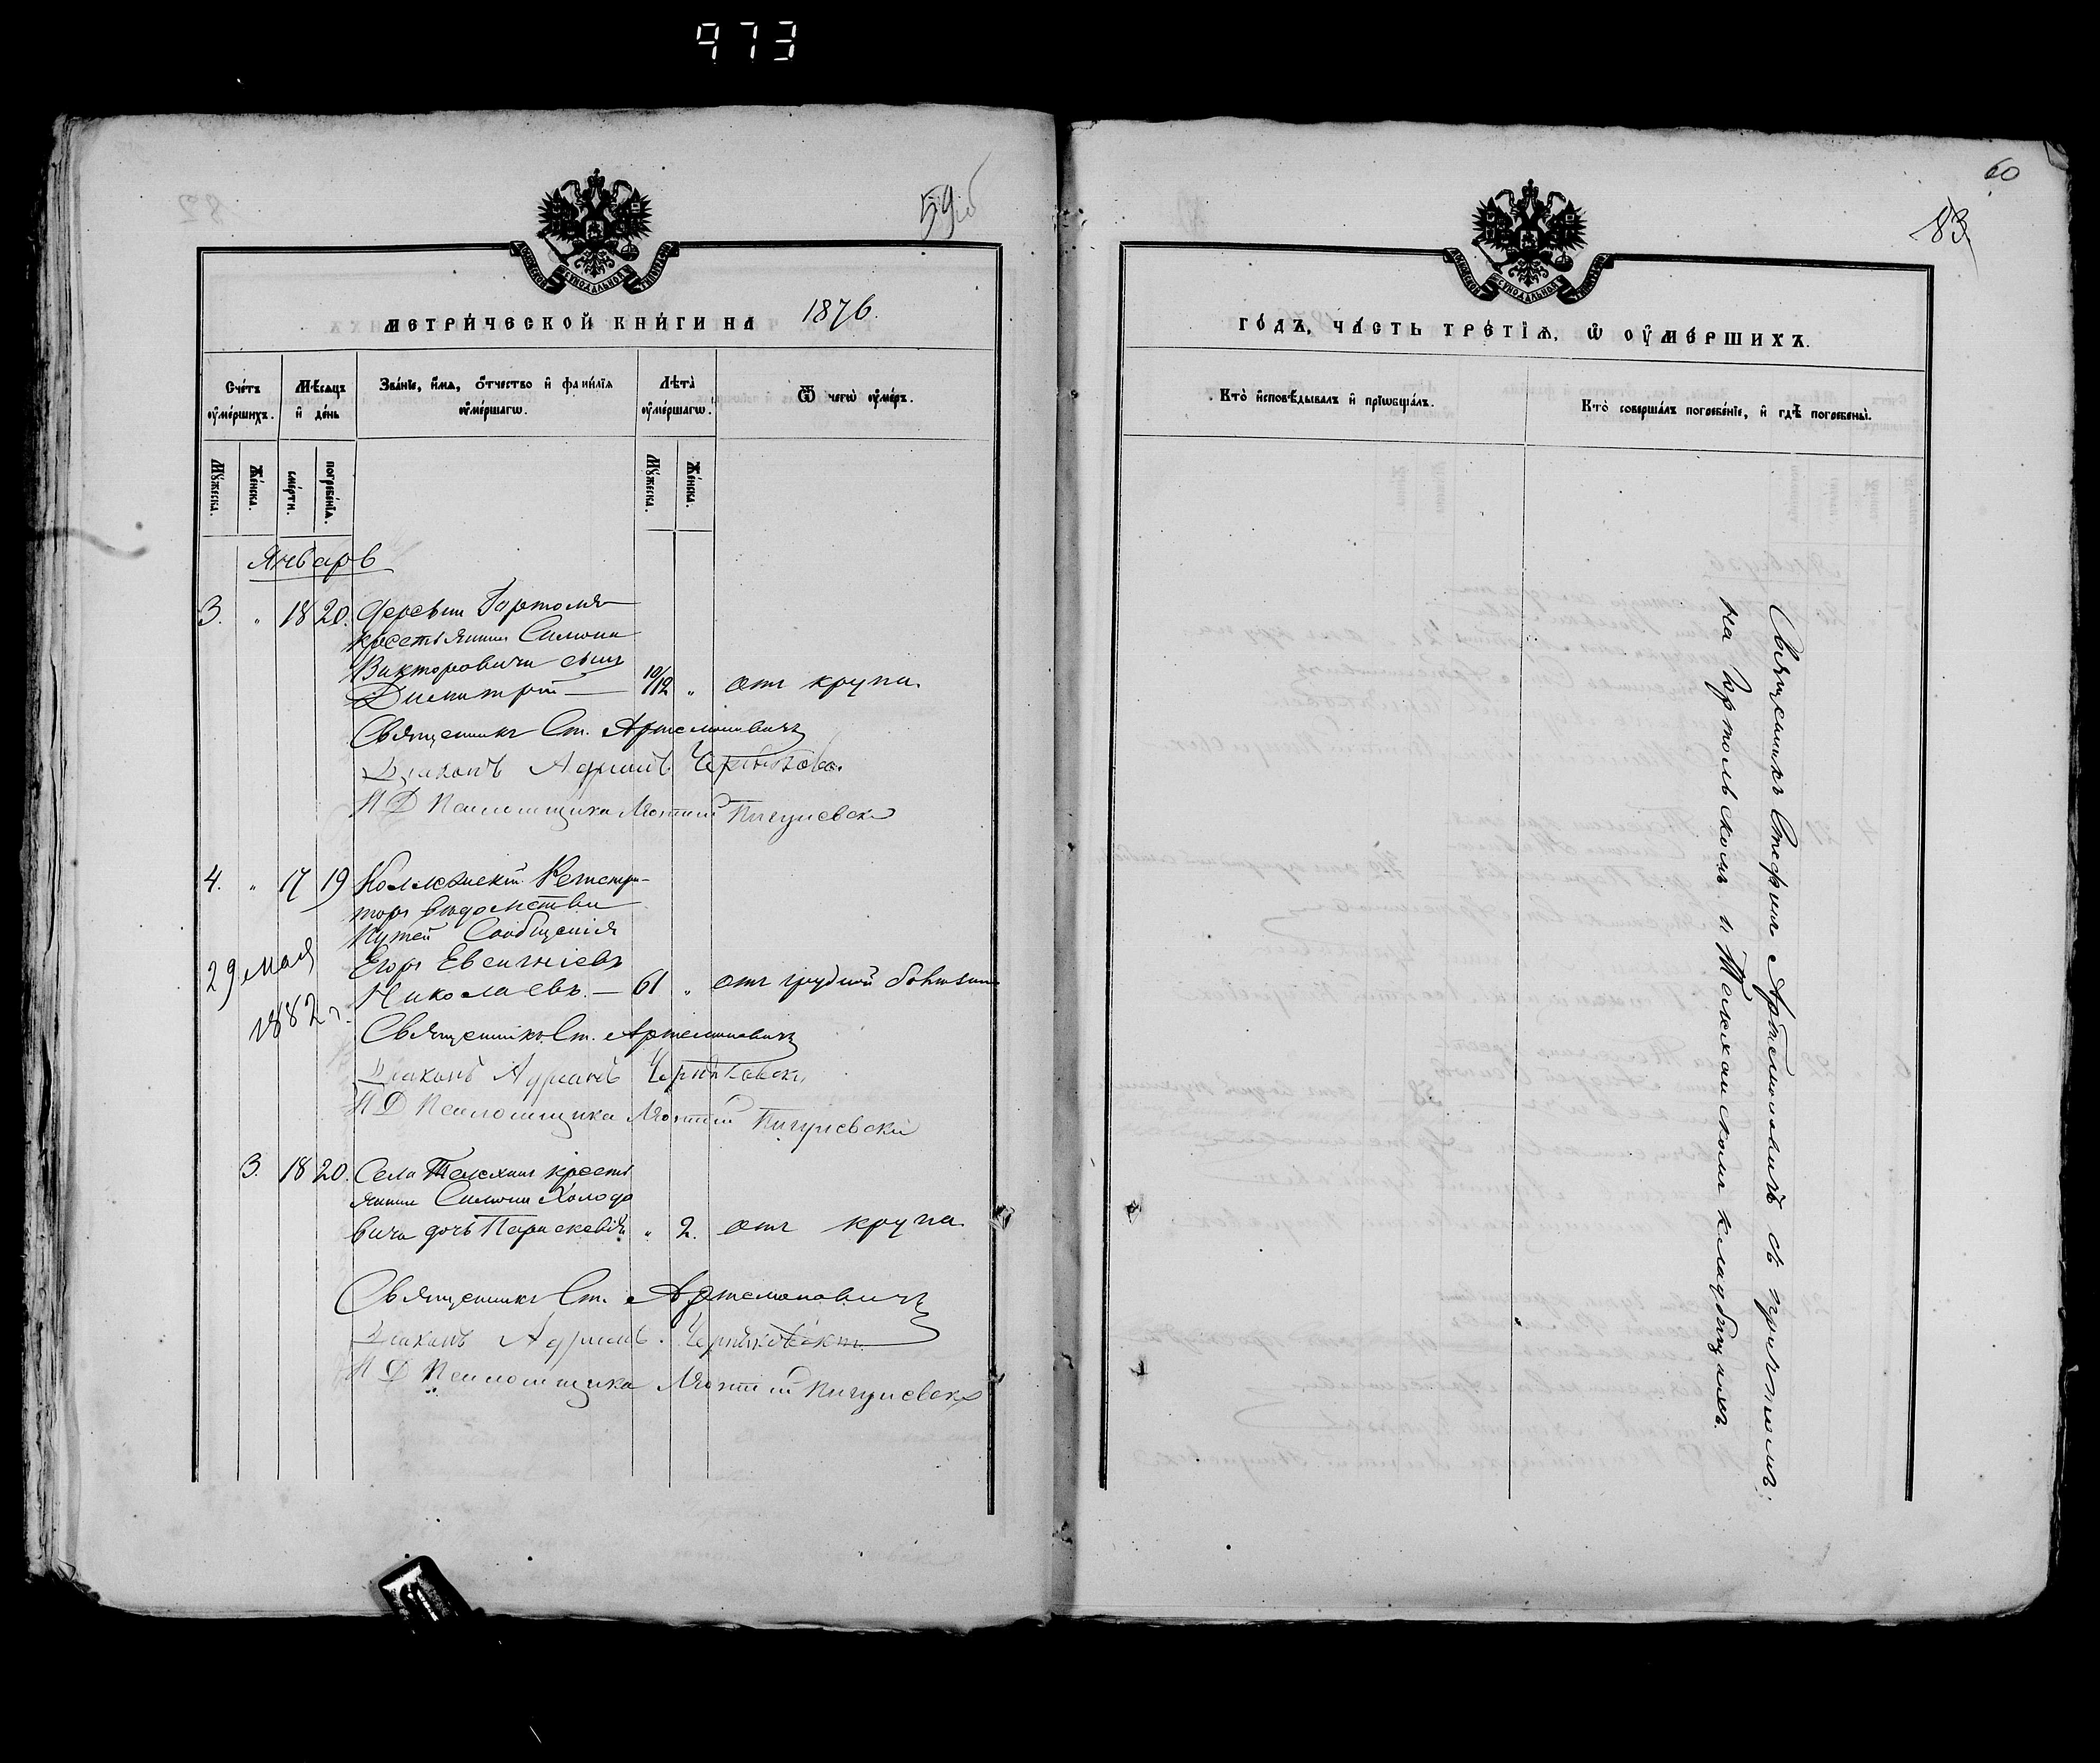 973
59об
МЕТРИ́ЧЕСКОЙ КНИ́ГИ НА 1876.
Сче́тъ оу҆ме́ршихъ.
Мѣ́сяцъ и҆ де́нь
Зва́нїе, и҆́мѧ, ѻ҆́тчество и҆ фами́лїѧ оу҆ме́ршагѡ.
Лѣ́та оу҆ме́ршагѡ.
Ѿ чегѡ̀ оу҆́меръ.
Мꙋ́жеска.
Же́нска.
сме́рти.
погребе́нїѧ.
Мꙋ́жеска.
Же́нска.
Январь
3. " 18 20. Деревни Гортоля
крестьянина Симона
Викторовича сынъ
Димитрій — 10/12 " отъ крупа.
Священникъ Ст. Артемоновичъ
Діаконъ Адріанъ Черняковскі
И Д Псаломщика Пигулевскі
4. " 17 19 Коллежскій Регистра-
торъ вѣдомства
Путей Сообщенія
Егоръ Евгеніевъ
Николаевъ. — 61 " отъ грудной болѣзни
29 мая
1882 г.
Священникъ Ст. Артемоновичъ
Діаконъ Адріанъ Черняковскі
И Д Псаломщика Пигулевскі
3. 18 20. Села Телеханъ кресть
янина Симона Холодо
вича дочь Параскевія " 2. отъ крупа
Священникъ Ст. Артемоновичъ
Діаконъ Адріанъ Черняковскі
И Д Псаломщика Пигулевскі
60
83
ГО́ДЪ, ЧА́СТЬ ТРЕ́ТЇѦ, Ѡ҆ ОУ҆МЕ́РШИХЪ.
Кто̀ и҆сповѣ́дывалъ и҆ прїѡбща́лъ.
Кто̀ соверша́лъ погребе́нїе, и҆ гдѣ̀ погребены̀.
Священникъ Стефанъ Артемоновичъ съ причтомъ;
на Гортольскомъ и Телеханскомъ кладбищахъ.